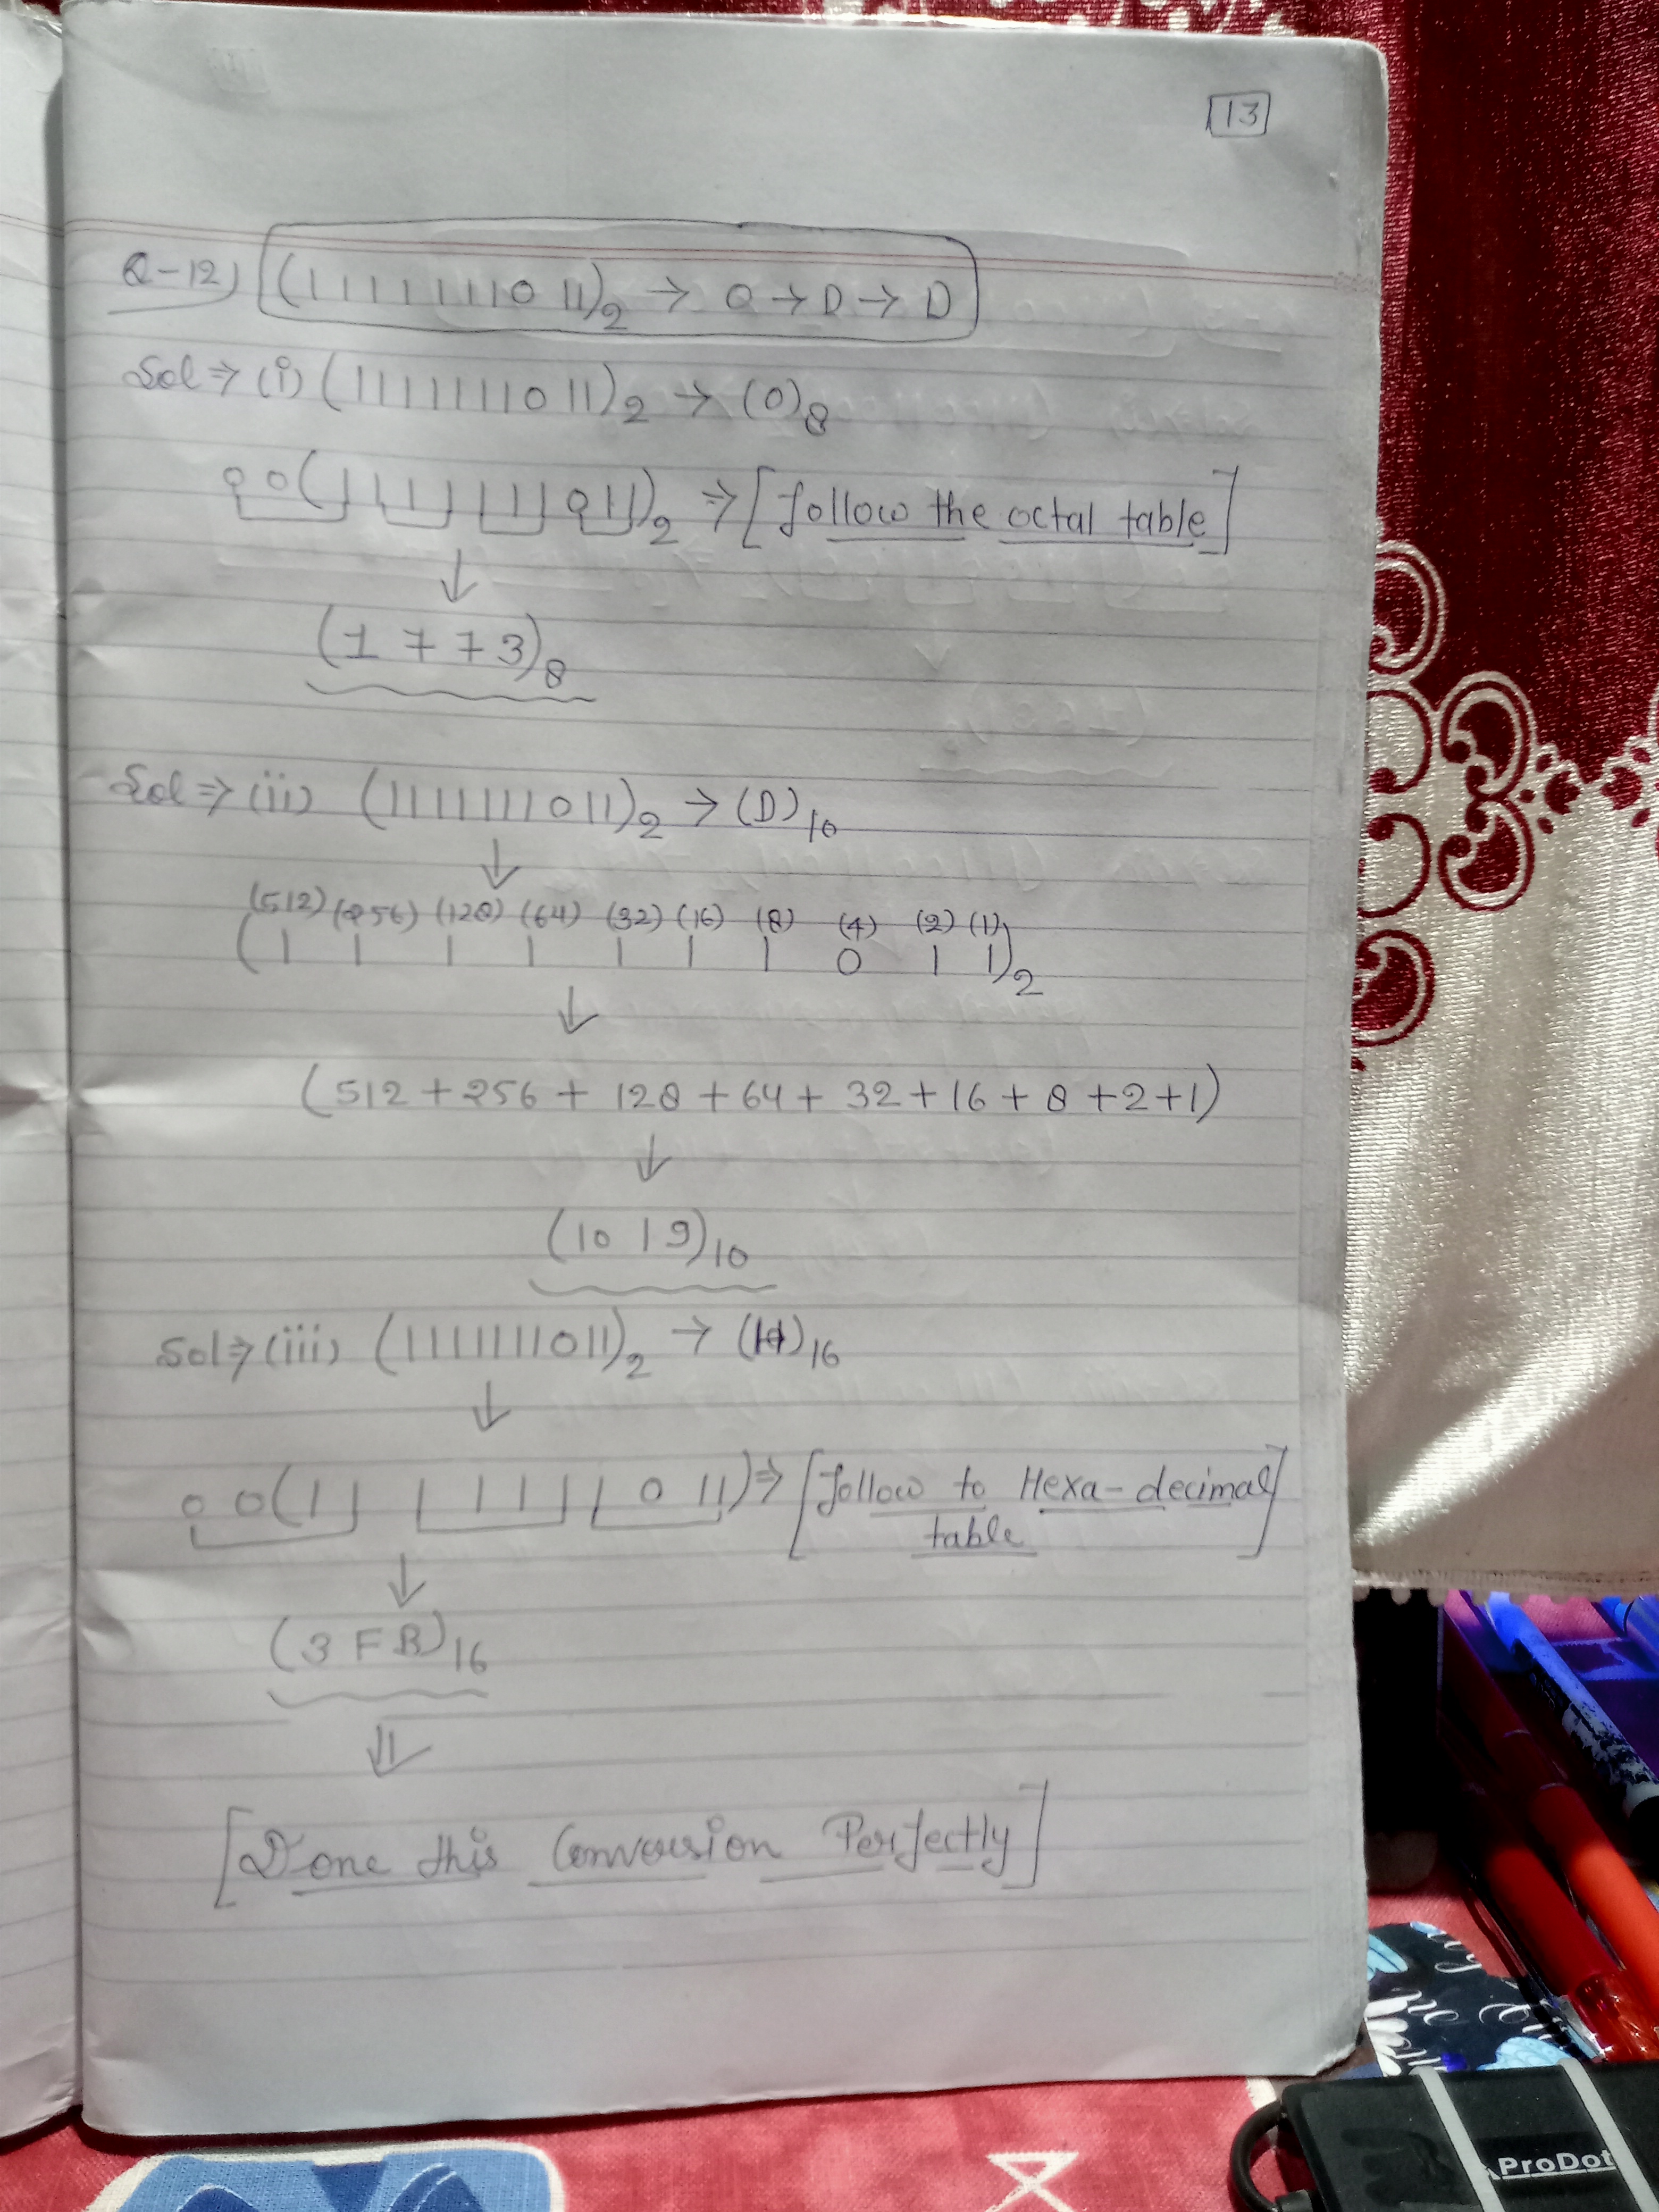 13
Q-12) (1111111011)₂ → O → D → D
Sol ⇒ (i) (1111111011)₂ → (O)₈
00(1 111 111 011)₂ ⇒ [follow the octal table]
↓
(1773)₈
Sol ⇒ (ii) (1111111011)₂ → (D)₁₀
↓
(512) (256) (128) (64) (32) (16) (8) (4) (2) (1)
(1 1 1 1 1 1 1 0 1 1)₂
↓
(512 + 256 + 128 + 64 + 32 + 16 + 8 + 2 + 1)
↓
(1019)₁₀
Sol ⇒ (iii) (1111111011)₂ → (H)₁₆
↓
00(11 1111 1011) ⇒ [follow to Hexa-decimal
table]
↓
(3FB)₁₆
⇓
[Done this Conversion Perfectly]
ProDot